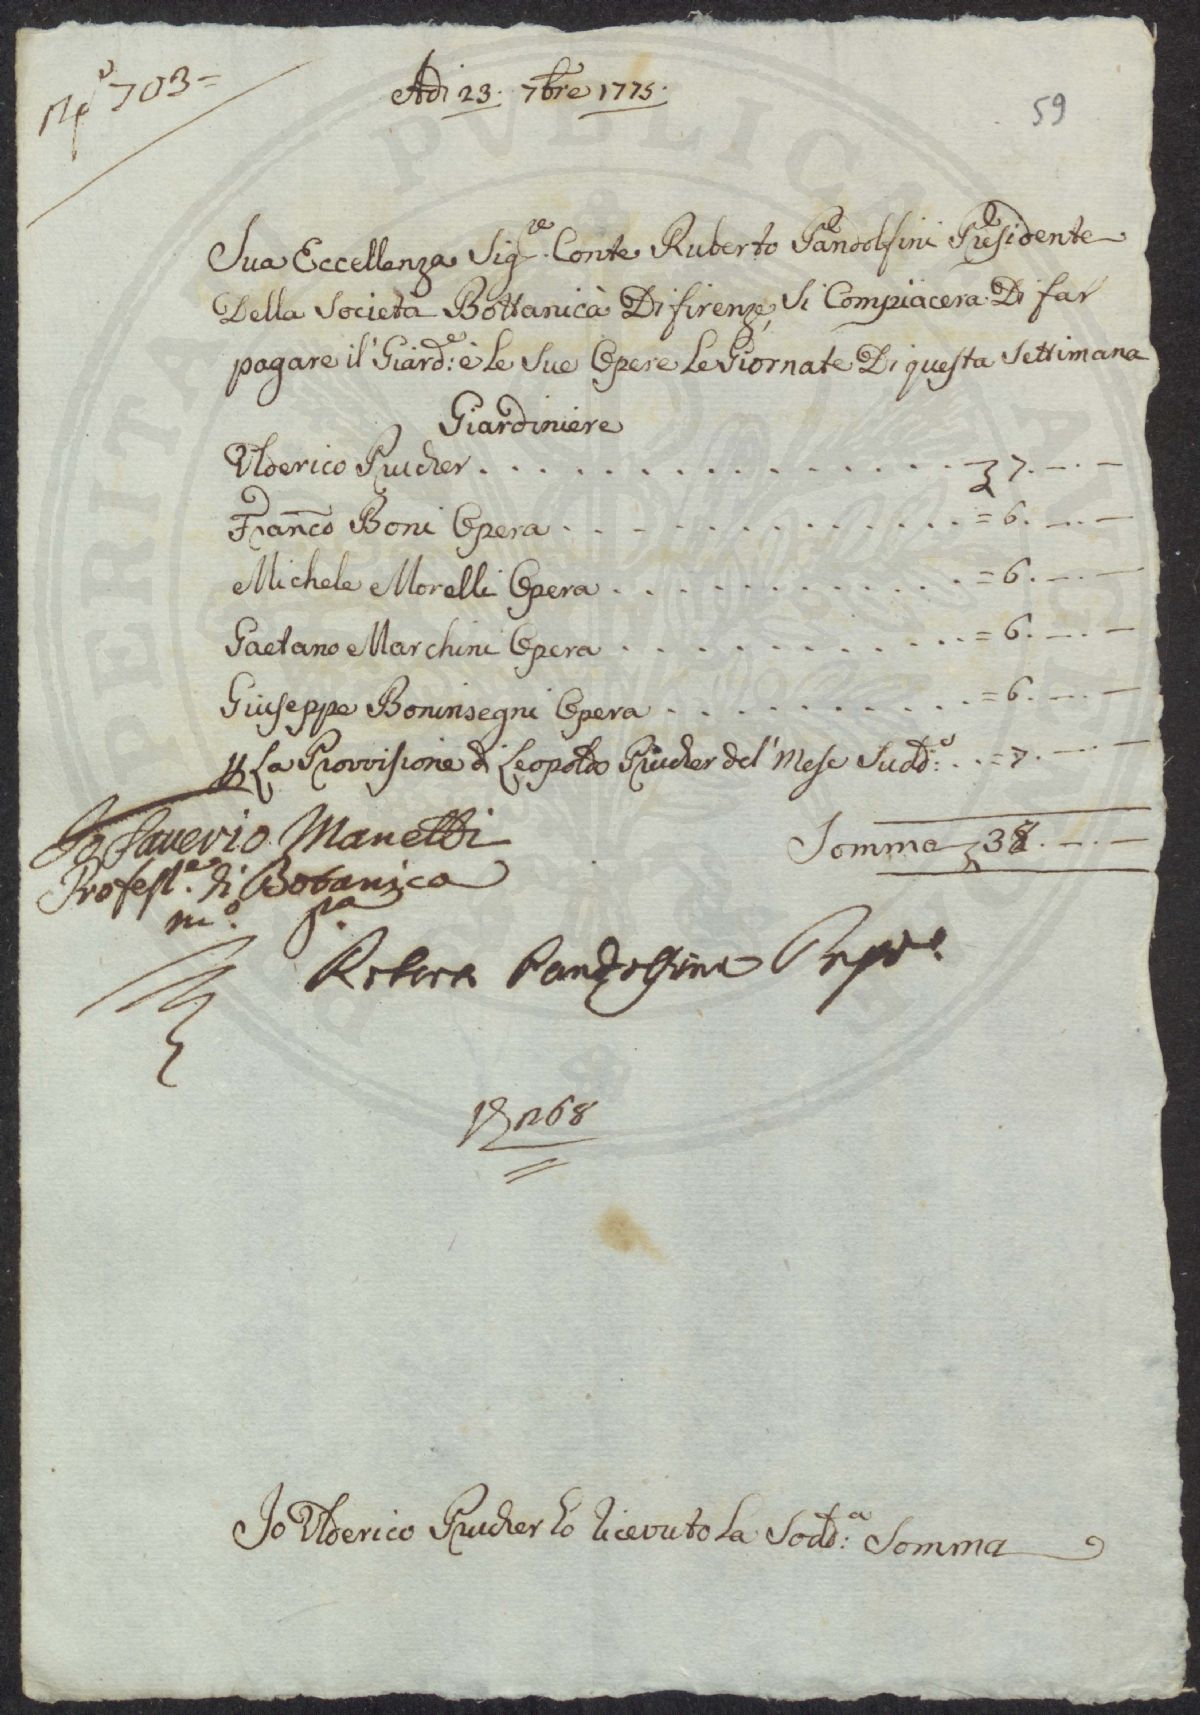 N.º 703 =
Adi 23. 7bre 1775.
59
Sua Eccellenza Sig.re Conte Ruberto Pandolfini Presidente
Della Società Bottanicà Di firenze, Si Compiacera Di far
pagare il' Giard.e: è Le Sue Opere Le Giornate Di questa Settimana
Giardiniere
Ulderico Prucher . . . . . . . . . . . . . . £ 7. — . —
Fran.co Boni Opera . . . . . . . . . . . . = 6. — . —
Michele Morelli Opera . . . . . . . . . . . = 6. — . —
Gaetano Marchini Opera . . . . . . . . . . = 6. — . —
Giuseppe Boninsegni Opera . . . . . . . . . = 6. — . —
La Provvisione di Leopoldo Prucher del' Mese Sudd:o . . = 7. — . —
Somma £ 38. — . —
Io Saverio Manetti
Profess.re di Botanica
m.o p.a
Roberto Pandolfini Presid.e
n 68
Io Ulderico Prucher ho ricevuto La Sodd:a Somma
PERITAT PVBLICA